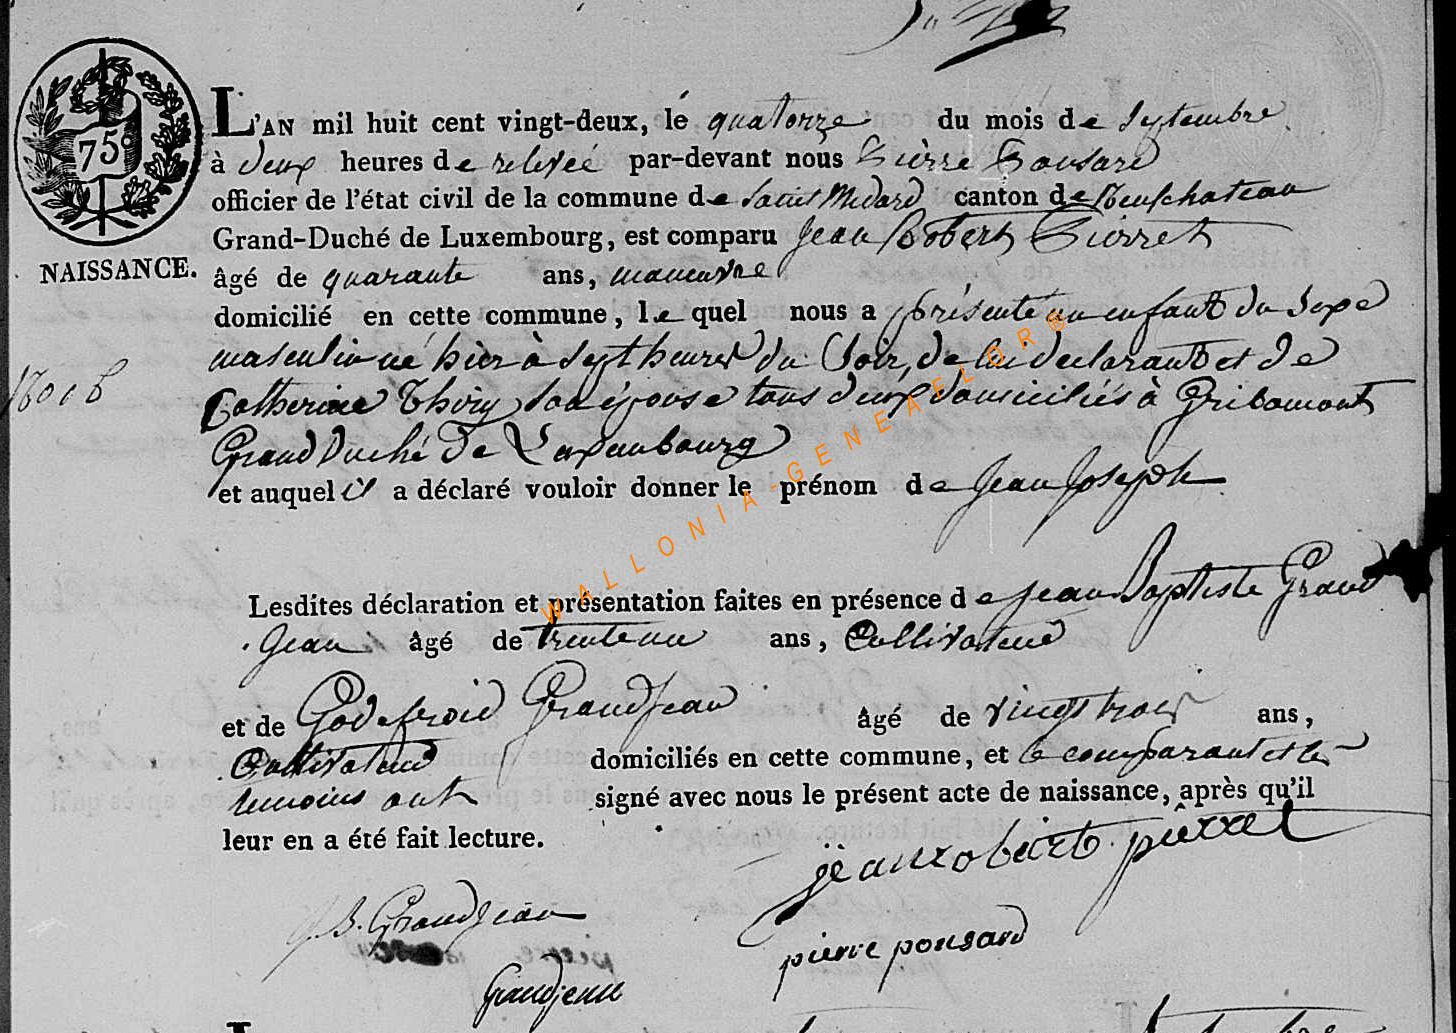 75c
NAISSANCE.
L'AN mil huit cent vingt-deux, le quatorze du mois de septembre
à deux heures de relevée par-devant nous Pierre Ponsard
officier de l'état civil de la commune de Saint Médard canton de Neufchateau
Grand-Duché de Luxembourg, est comparu Jean Robert Pierret
âgé de quarante ans, maneuvre
domicilié en cette commune, lequel nous a présenté un enfant du sexe
masculin né hier à sept heures du soir, de lui déclarant et de
Catherine Thiry son épouse tous deux domiciliés à Gribomont
Grand Duché de Luxembourg
et auquel il a déclaré vouloir donner le prénom de Jean Joseph
Lesdites déclaration et présentation faites en présence de Jean Baptiste Grand
Jean âgé de trente un ans, Cultivateur
et de Godefroid GrandJean âgé de vingt trois ans,
Cultivateur domiciliés en cette commune, et le comparant et les
temoins ont signé avec nous le présent acte de naissance, après qu'il
leur en a été fait lecture.
jean robert pierret
J.B. GrandJean
pierre ponsard
Grandjean
WALLONIA-GENEAELOR®